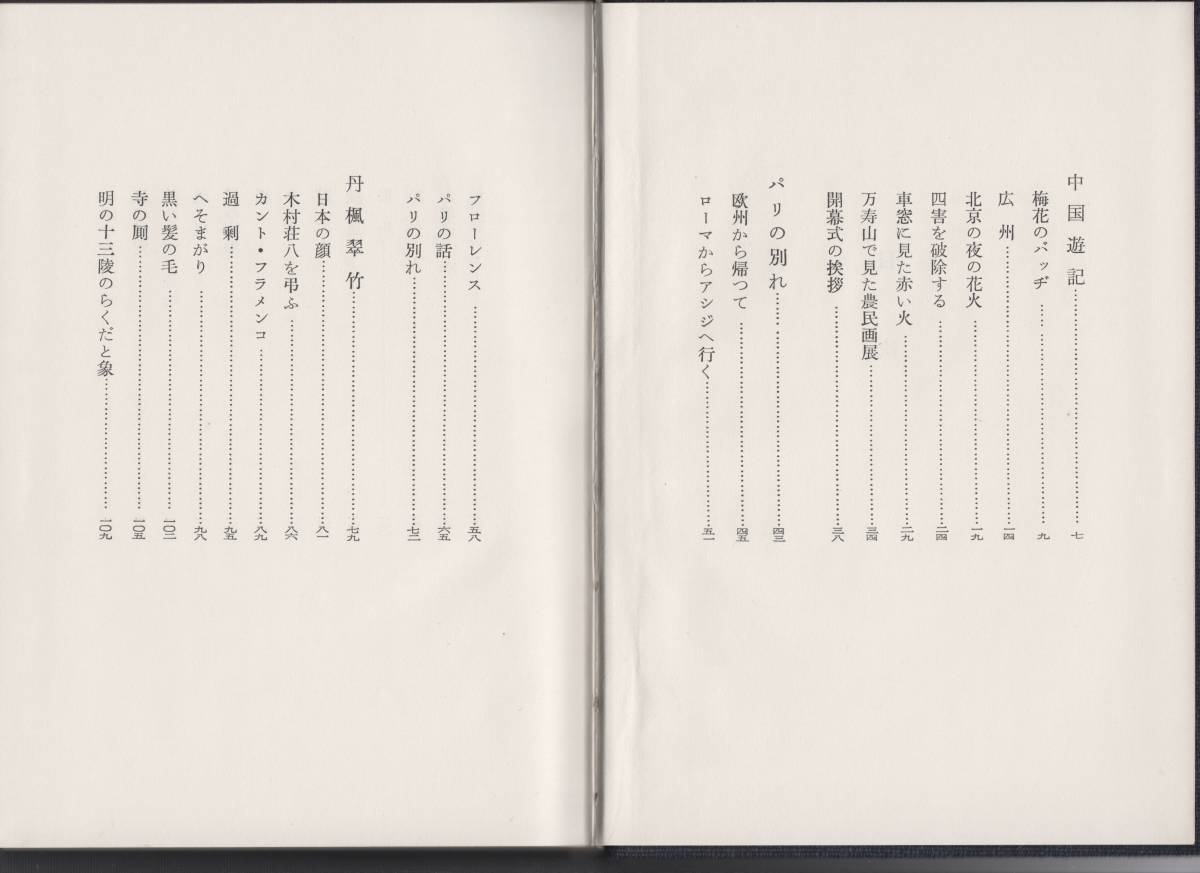 中国遊記……七
梅花のバッヂ……九
広州……一四
北京の夜の花火……一九
四害を破除する……二四
車窓に見た赤い火……二九
万寿山で見た農民画展……三四
開幕式の挨拶……三八
パリの別れ……四三
欧州から帰つて……四五
ローマからアシジへ行く……五一
フローレンス……五八
パリの話……六五
パリの別れ……七二
丹楓翠竹……七九
日本の顔……八一
木村荘八を弔ふ……八六
カント・フラメンコ……八九
過剰……九五
へそまがり……九八
黒い髪の毛……一〇二
寺の厠……一〇五
明の十三陵のらくだと象……一〇九